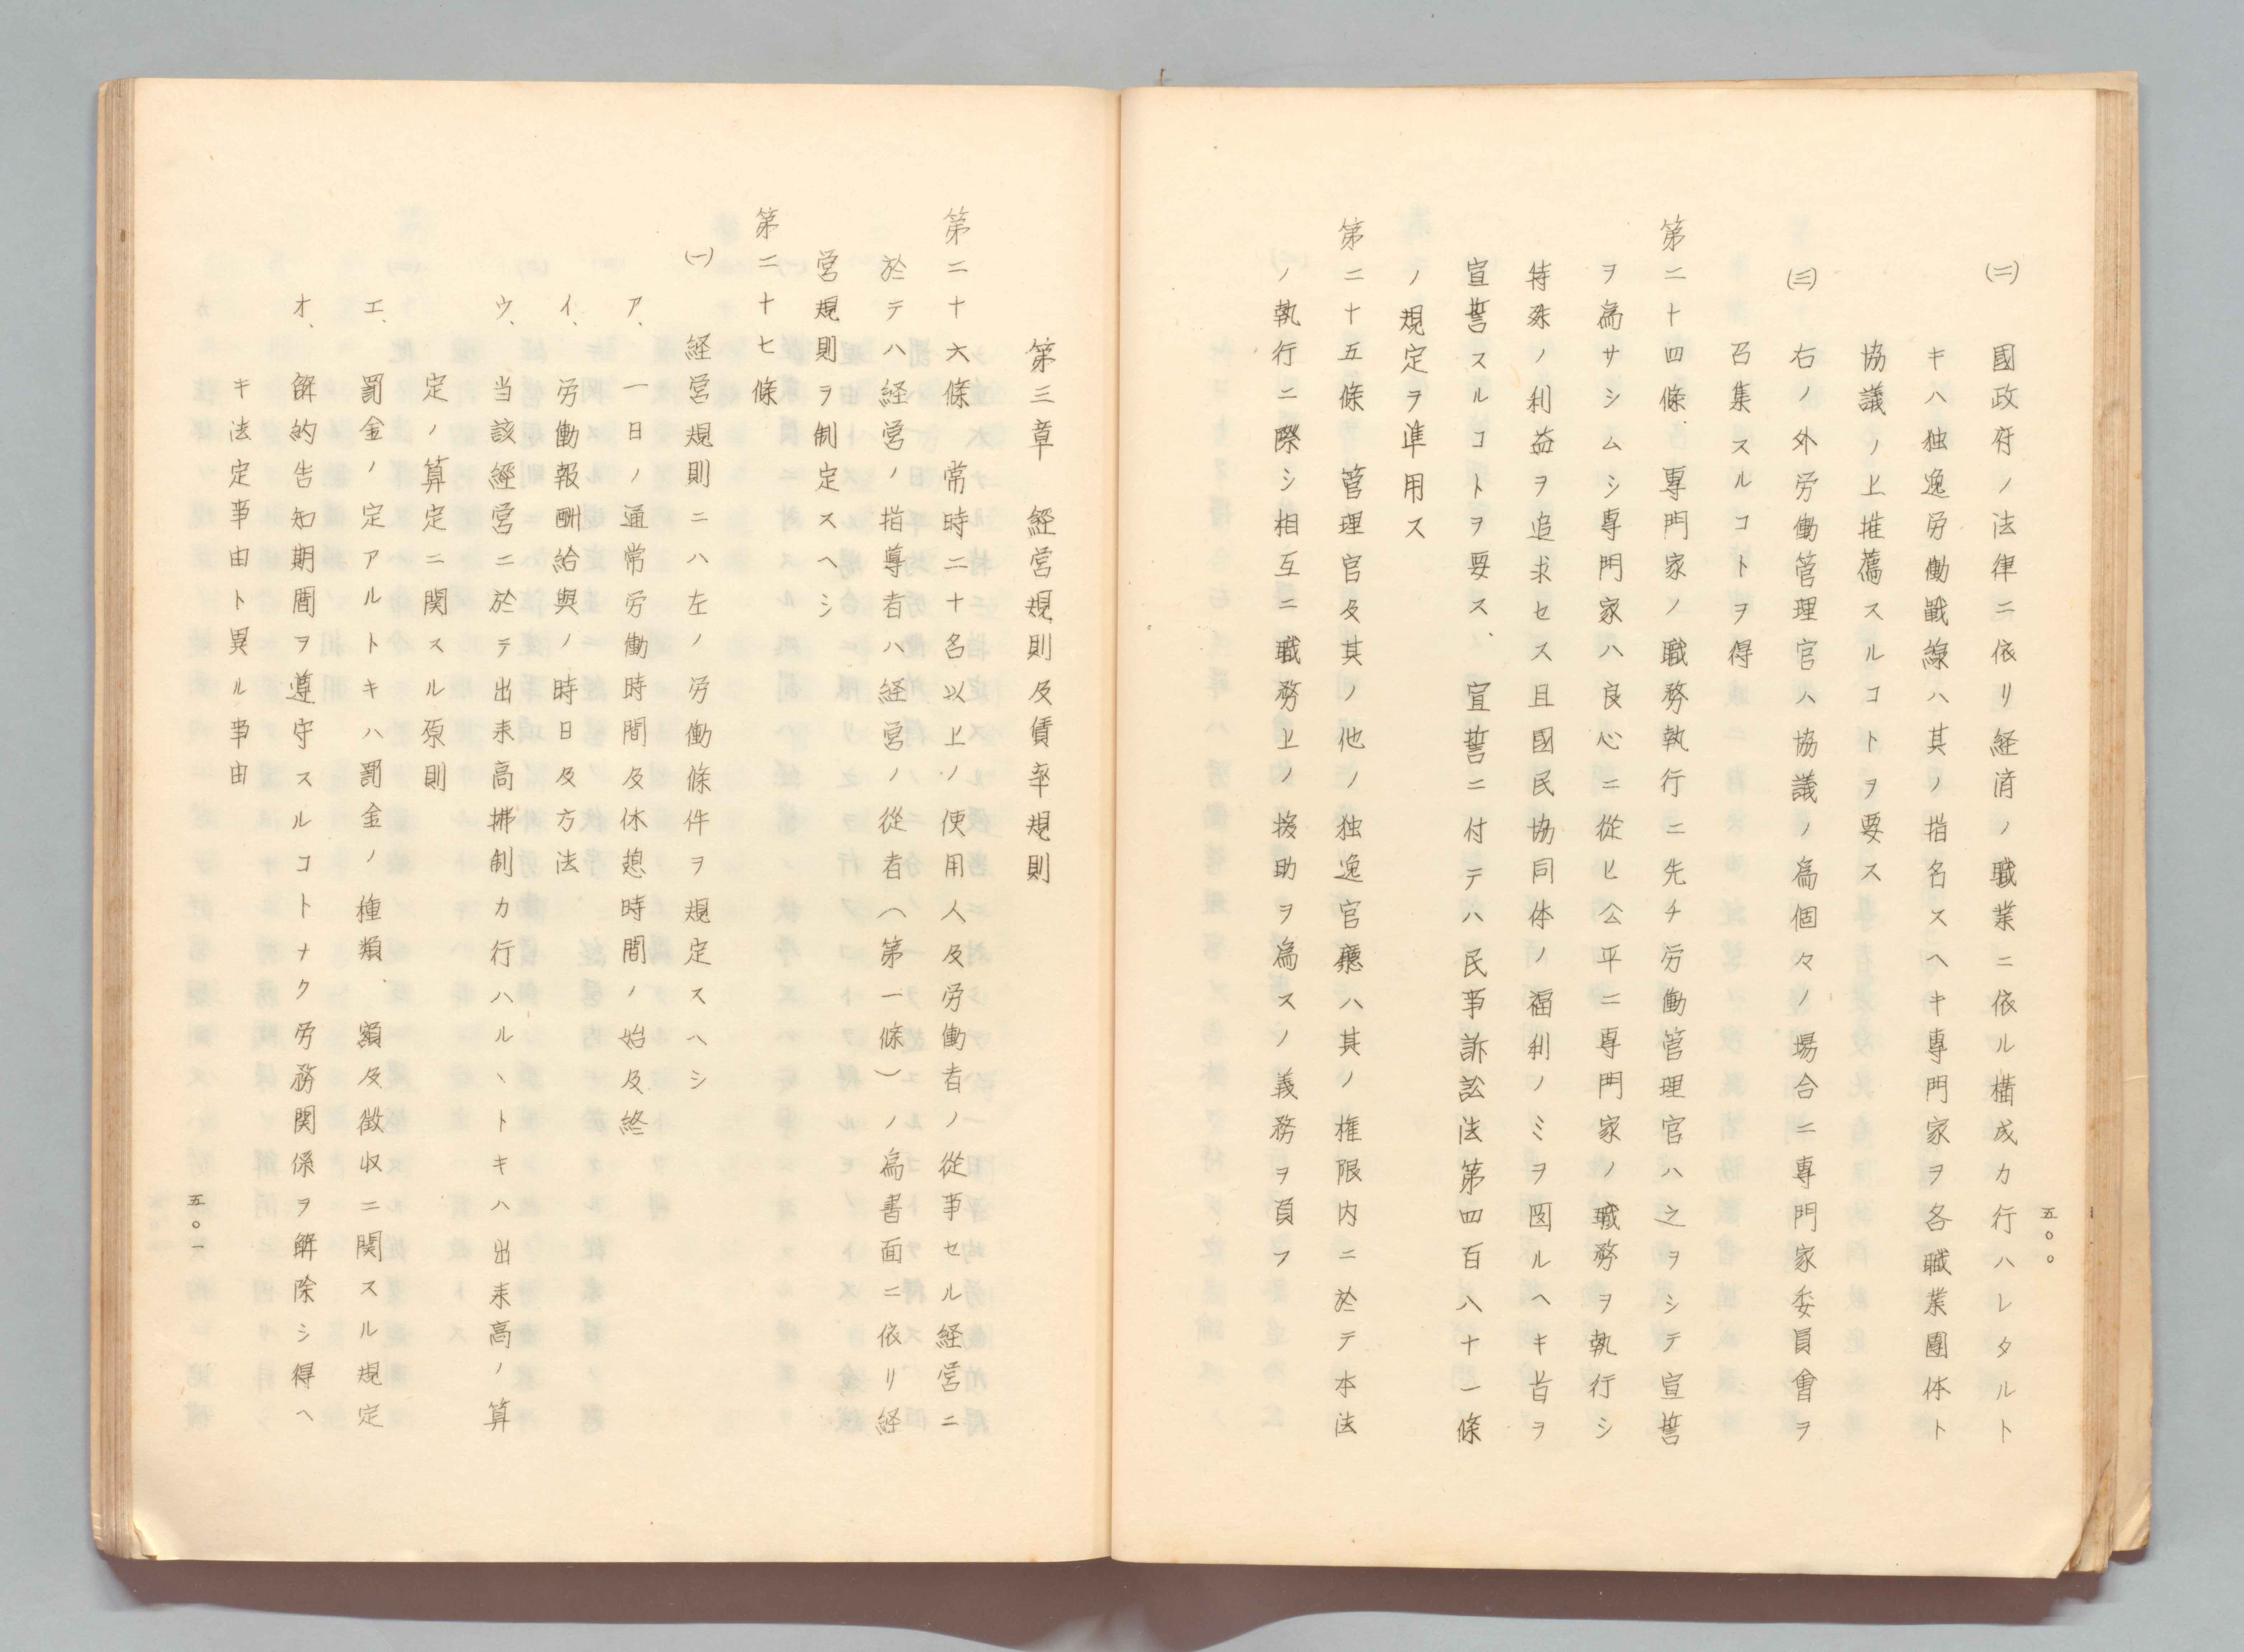 ㈡　國政府ノ法律ニ依リ経済ノ職業ニ依ル構成カ行ハレタルト
キハ独逸労働戦線ハ其ノ指名スヘキ專門家ヲ各職業團体ト
協議ノ上推薦スルコトヲ要ス
㈢　右ノ外労働管理官ハ協議ノ為個々ノ場合ニ専門家委員會ヲ
召集スルコトヲ得
第二十四條、專門家ノ職務執行ニ先チ労働管理官ハ之ヲシテ宣誓
ヲ為サシムシ專門家ハ良心ニ從ヒ公平ニ専門家ノ職務ヲ執行シ
特殊ノ利益ヲ追求セス且國民協同体ノ福利ノミヲ図ルヘキ旨ヲ
宣誓スルコトヲ要ス、宣誓ニ付テハ民事訴訟法第四百八十一條
ノ規定ヲ準用ス
第二十五條　管理官及其ノ他ノ独逸官廳ハ其ノ権限内ニ於テ本法
ノ執行ニ際シ相互ニ職務上ノ援助ヲ為スノ義務ヲ負フ
五〇〇
第三章　経営規則及賃率規則
第二十六條　常時二十名以上ノ使用人及労働者ノ從事セル経営ニ
於テハ経営ノ指導者ハ経営ノ從者（第一條）ノ為書面ニ依リ経
営規則ヲ制定スヘシ
第二十七條
㈠　経営規則ニハ左ノ労働條件ヲ規定スヘシ
ア、一日ノ通常労働時間及休憩時間ノ始及終
イ、労働報酬給與ノ時日及方法
ウ、当該經営ニ於テ出来高拂制カ行ハルヽトキハ出来高ノ算
定ノ算定ニ関スル原則
エ、罰金ノ定アルトキハ罰金ノ種類、額及徴収ニ関スル規定
オ、解約告知期間ヲ遵守スルコトナク労務関係ヲ解除シ得ヘ
キ法定事由ト異ル事由
五〇一